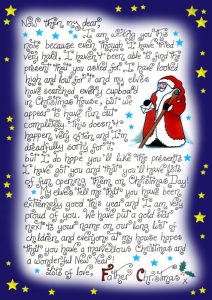 Now then my dear,
I am writing you this
note because even though I have tried
very hard, I haven't been able to find the
present that you asked for. I have looked
high and low for it and my elves
have searched every cupboard
in Christmas House, but we
appear to have run out
completely. This doesn't
happen very often and I'm
dreadfully sorry for it,
but I do hope you'll like the presents
I have got you and that you'll have lots
of fun opening them on Christmas Day!
My elves tell me that you have been
extremely good this year and I am very
proud of you. We have put a gold star
next to your name on our long list of
children, and everyone at my house hopes
that you have a marvellous Christmas and
a wonderful New Year
Lots of love, Father Christmas x